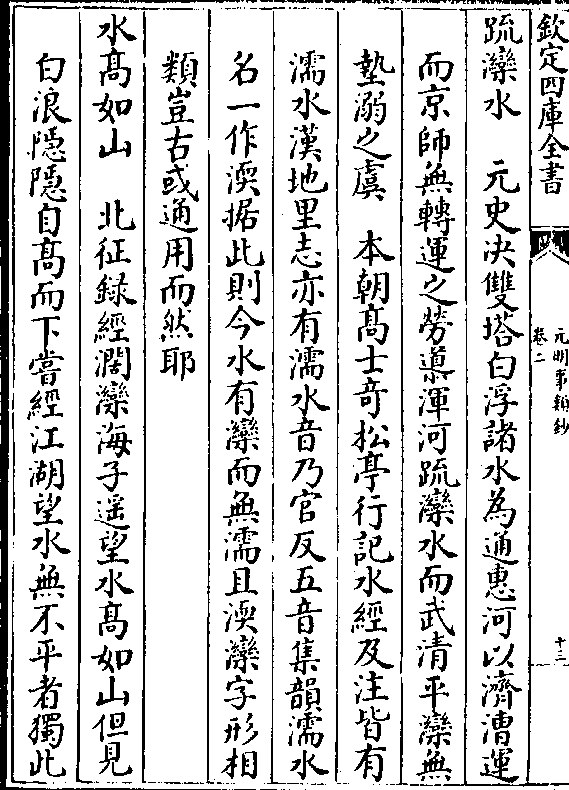 欽定四庫全書
元明事類鈔
卷二
十三
疏灤水　元史决雙塔白浮諸水為通惠河以濟漕運
而京師無轉運之勞導渾河疏灤水而武清平灤無
墊溺之虞　本朝髙士竒松亭行記水經及注皆有
濡水漢地里志亦有濡水音乃官反五音集韻濡水
名一作渜据此則今水有灤而無濡且渜灤字形相
類豈古或通用而然耶
水髙如山　北征録經濶灤海子遥望水髙如山但見
白浪隠隠自髙而下嘗經江湖望水無不平者獨此